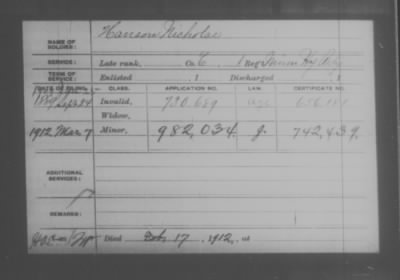 NAME OF SOLDIER: Hanson Nicholas
SERVICE: Late rank, Co. C, 1 Reg't Minn Hvy Arty
TERM OF SERVICE: Enlisted , 1 Discharged , 1
DATE OF FILING. CLASS. APPLICATION NO. LAW. CERTIFICATE NO.
1889 Sept 24 Invalid, 730.689
Widow,
1912 Mar 7 Minor, 982,034. G. 742,439.
ADDITIONAL SERVICES:
REMARKS:
Died Feb 17, 1912, at